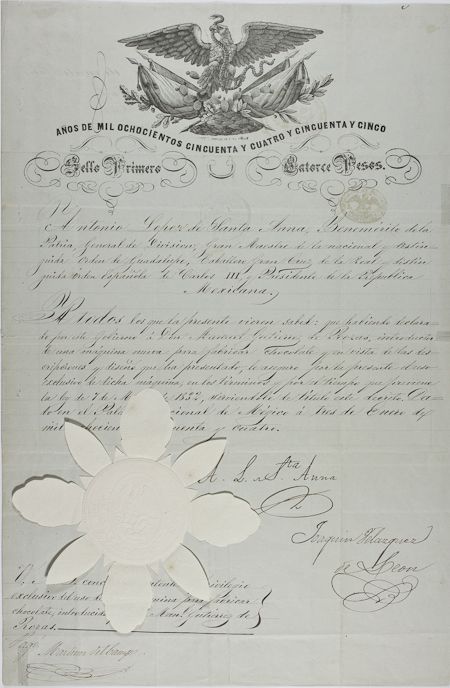 AÑOS DE MIL OCHOCIENTOS CINCUENTA Y CUATRO Y CINCUENTA Y CINCO
Sello Primero
Catorce Pesos.
Antonio Lopez de Santa Anna, Benemérito de la
Patria, General de Division, Gran Maestre de la nacional y distin-
guida Orden de Guadalupe, Caballero Gran Cruz de la Real y distin-
guida Orden Española de Carlos III, y Presidente de la República
Mexicana.
A todos los que la presente vieren sabed: que habiendo declara-
do por este Gobierno á Don Manuel Gutierrez de Rozas, introductor
de una máquina nueva para fabricar Chocolate, y en vista de las des-
cripciones y diseño que ha presentado, le aseguro por la presente el uso
exclusivo de dicha máquina, en los términos y por el tiempo que previene
la ley de 7 de de 1832, de este decreto. Da-
do en el Nacional de México á tres de Enero de
mil cuenta y cuatro.
A. L. de Sta Anna
Joaquin Velazquez
de Leon
V. E. conc privilegio
exclusivo del uso de para fabricar
chocolate, introducida Man. Gutierrez de
Rozas.